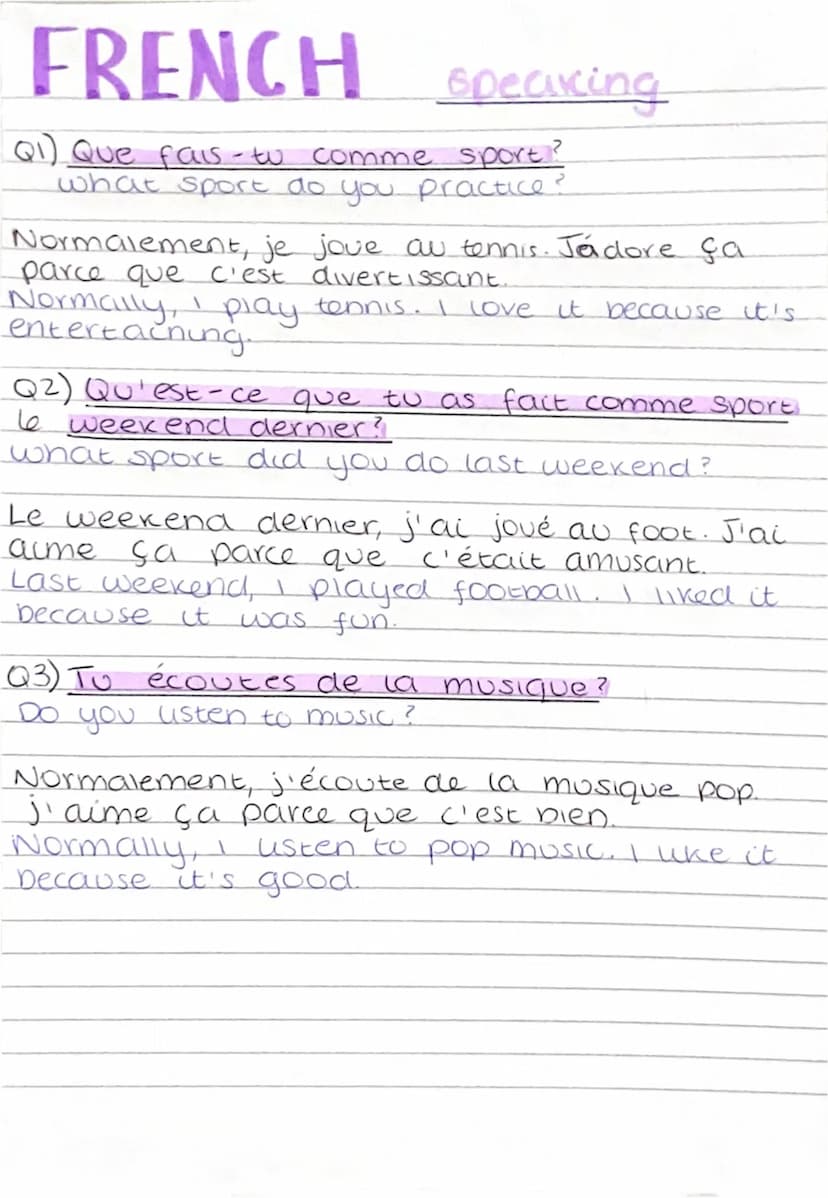 FRENCH speaking
Q1) Que fais-tu comme sport?
what sport do you practice?
Normalement, je joue au tennis. J'adore ça
parce que c'est divertissant.
Normally, i play tennis. I love it because it's
entertaining.
Q2) Qu'est-ce que tu as fait comme sport
le weekend dernier?
what sport did you do last weekend?
Le weekend dernier, j'ai joué au foot. J'ai
aime ça parce que c'était amusant.
Last weekend, I played football. I liked it
because it was fun.
Q3) Tu écoutes de la musique?
Do you listen to music?
Normalement, j'écoute de la musique pop.
j'aime ça parce que c'est bien.
Normally, i listen to pop music. I like it
because it's good.